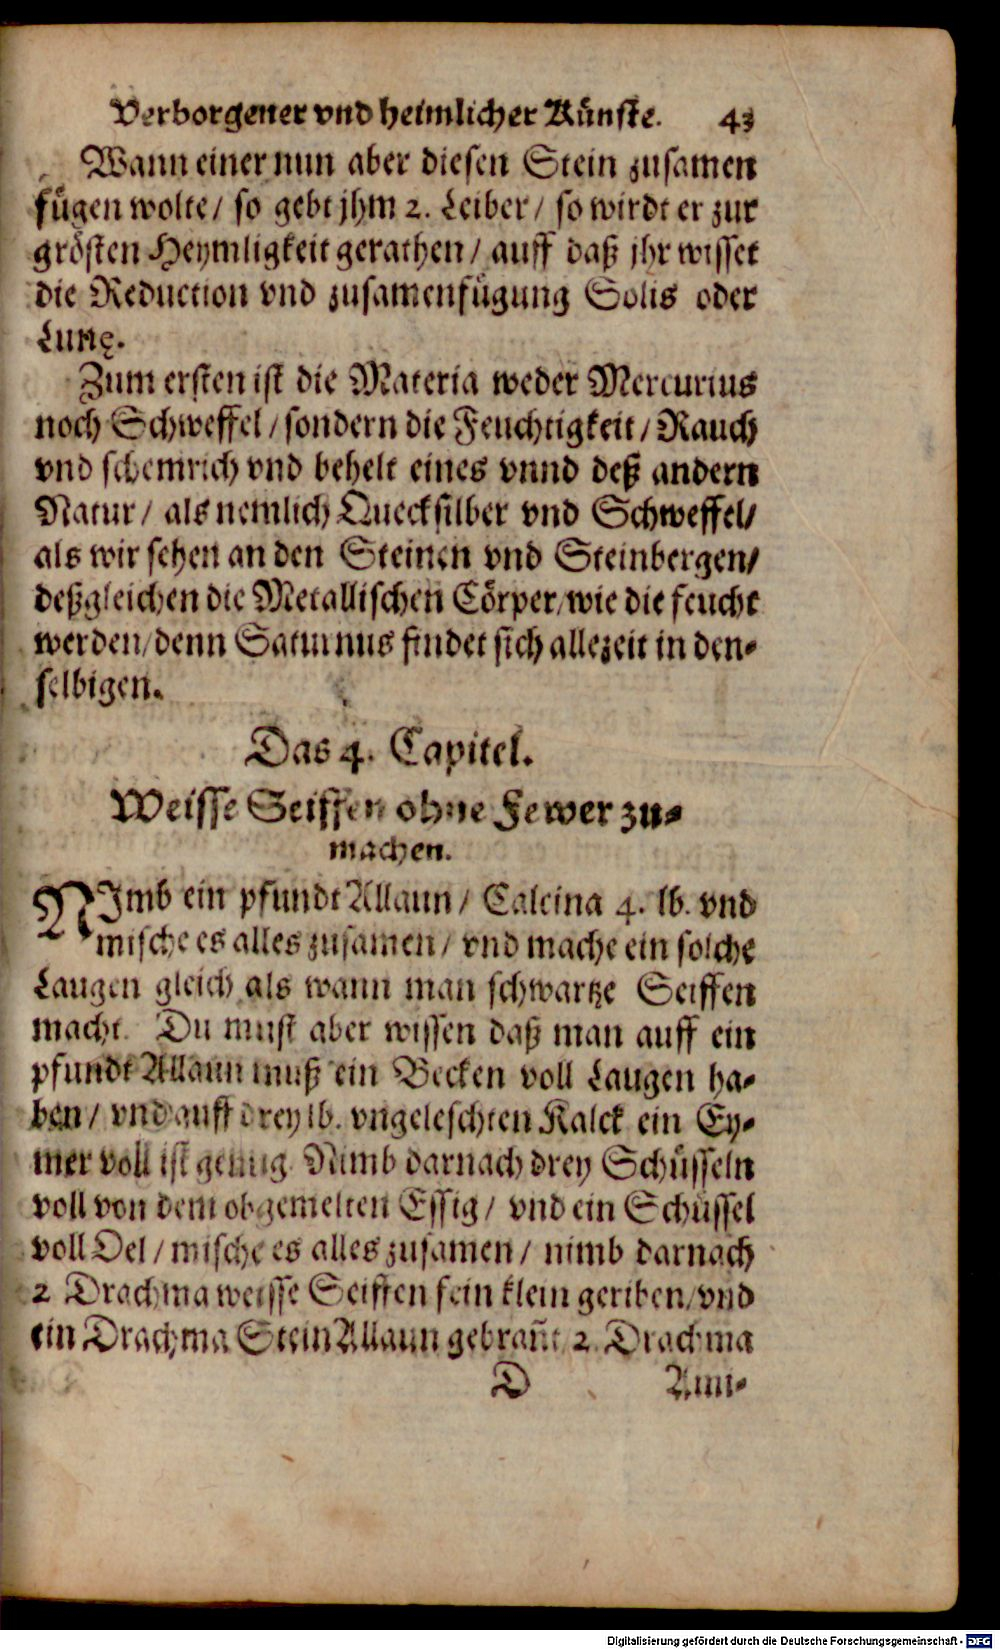 Verborgener vnd heimlicher Künste. 43
Wann einer nun aber diesen Stein zusamen
fügen wolte/ so gebt jhm 2. Leiber/ so wirdt er zur
grösten Heymligkeit gerathen/ auff daß jhr wisset
die Reduction vnd zusamenfügung Solis oder
Lunę.
Zum ersten ist die Materia weder Mercurius
noch Schweffel/ sondern die Feuchtigkeit/ Rauch
vnd schemrich vnd behelt eines vnnd deß andern
Natur/ als nemlich Quecksilber vnd Schweffel/
als wir sehen an den Steinen vnd Steinbergen/
deßgleichen die Metallischen Cörper/ wie die feucht
werden/ denn Saturnus findet sich allezeit in den-
selbigen.
Das 4. Capitel.
Weisse Seiffen ohne Fewer zu-
machen.
NImb ein pfundt Allaun/ Calcina 4. lb. vnd
mische es alles zusamen/ vnd mache ein solche
Laugen gleich als wann man schwartze Seiffen
macht. Du must aber wissen daß man auff ein
pfundt Allaun muß ein Becken voll Laugen ha-
ben/ vnd auff drey lb. vngeleschten Kalck ein Ey-
mer voll ist genug. Nimb darnach drey Schüsseln
voll von dem obgemelten Essig/ vnd ein Schüssel
voll Oel/ mische es alles zusamen/ nimb darnach
2 Drachma weisse Seiffen fein klein geriben/ vnd
ein Drachma Stein Allaun gebrañt/ 2. Drachma
D Ami-
Digitalisierung gefördert durch die Deutsche Forschungsgemeinschaft - DFG